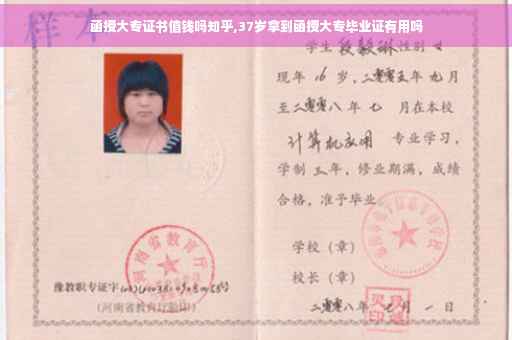 函授大专证书值钱吗知乎,37岁拿到函授大专毕业证有用吗
样本
学生 段毅琳 性别 女
现年 16 岁，二零零五年 九月
至二零零八年 七 月在本校
计算机应用 专业学习，
学制 三 年，修业期满，成绩
合格，准予毕业
学校（章）
校长（章）
二零零八年 七 月 一 日
河南省教育厅
豫教职专证字
（河南省教育厅验印）